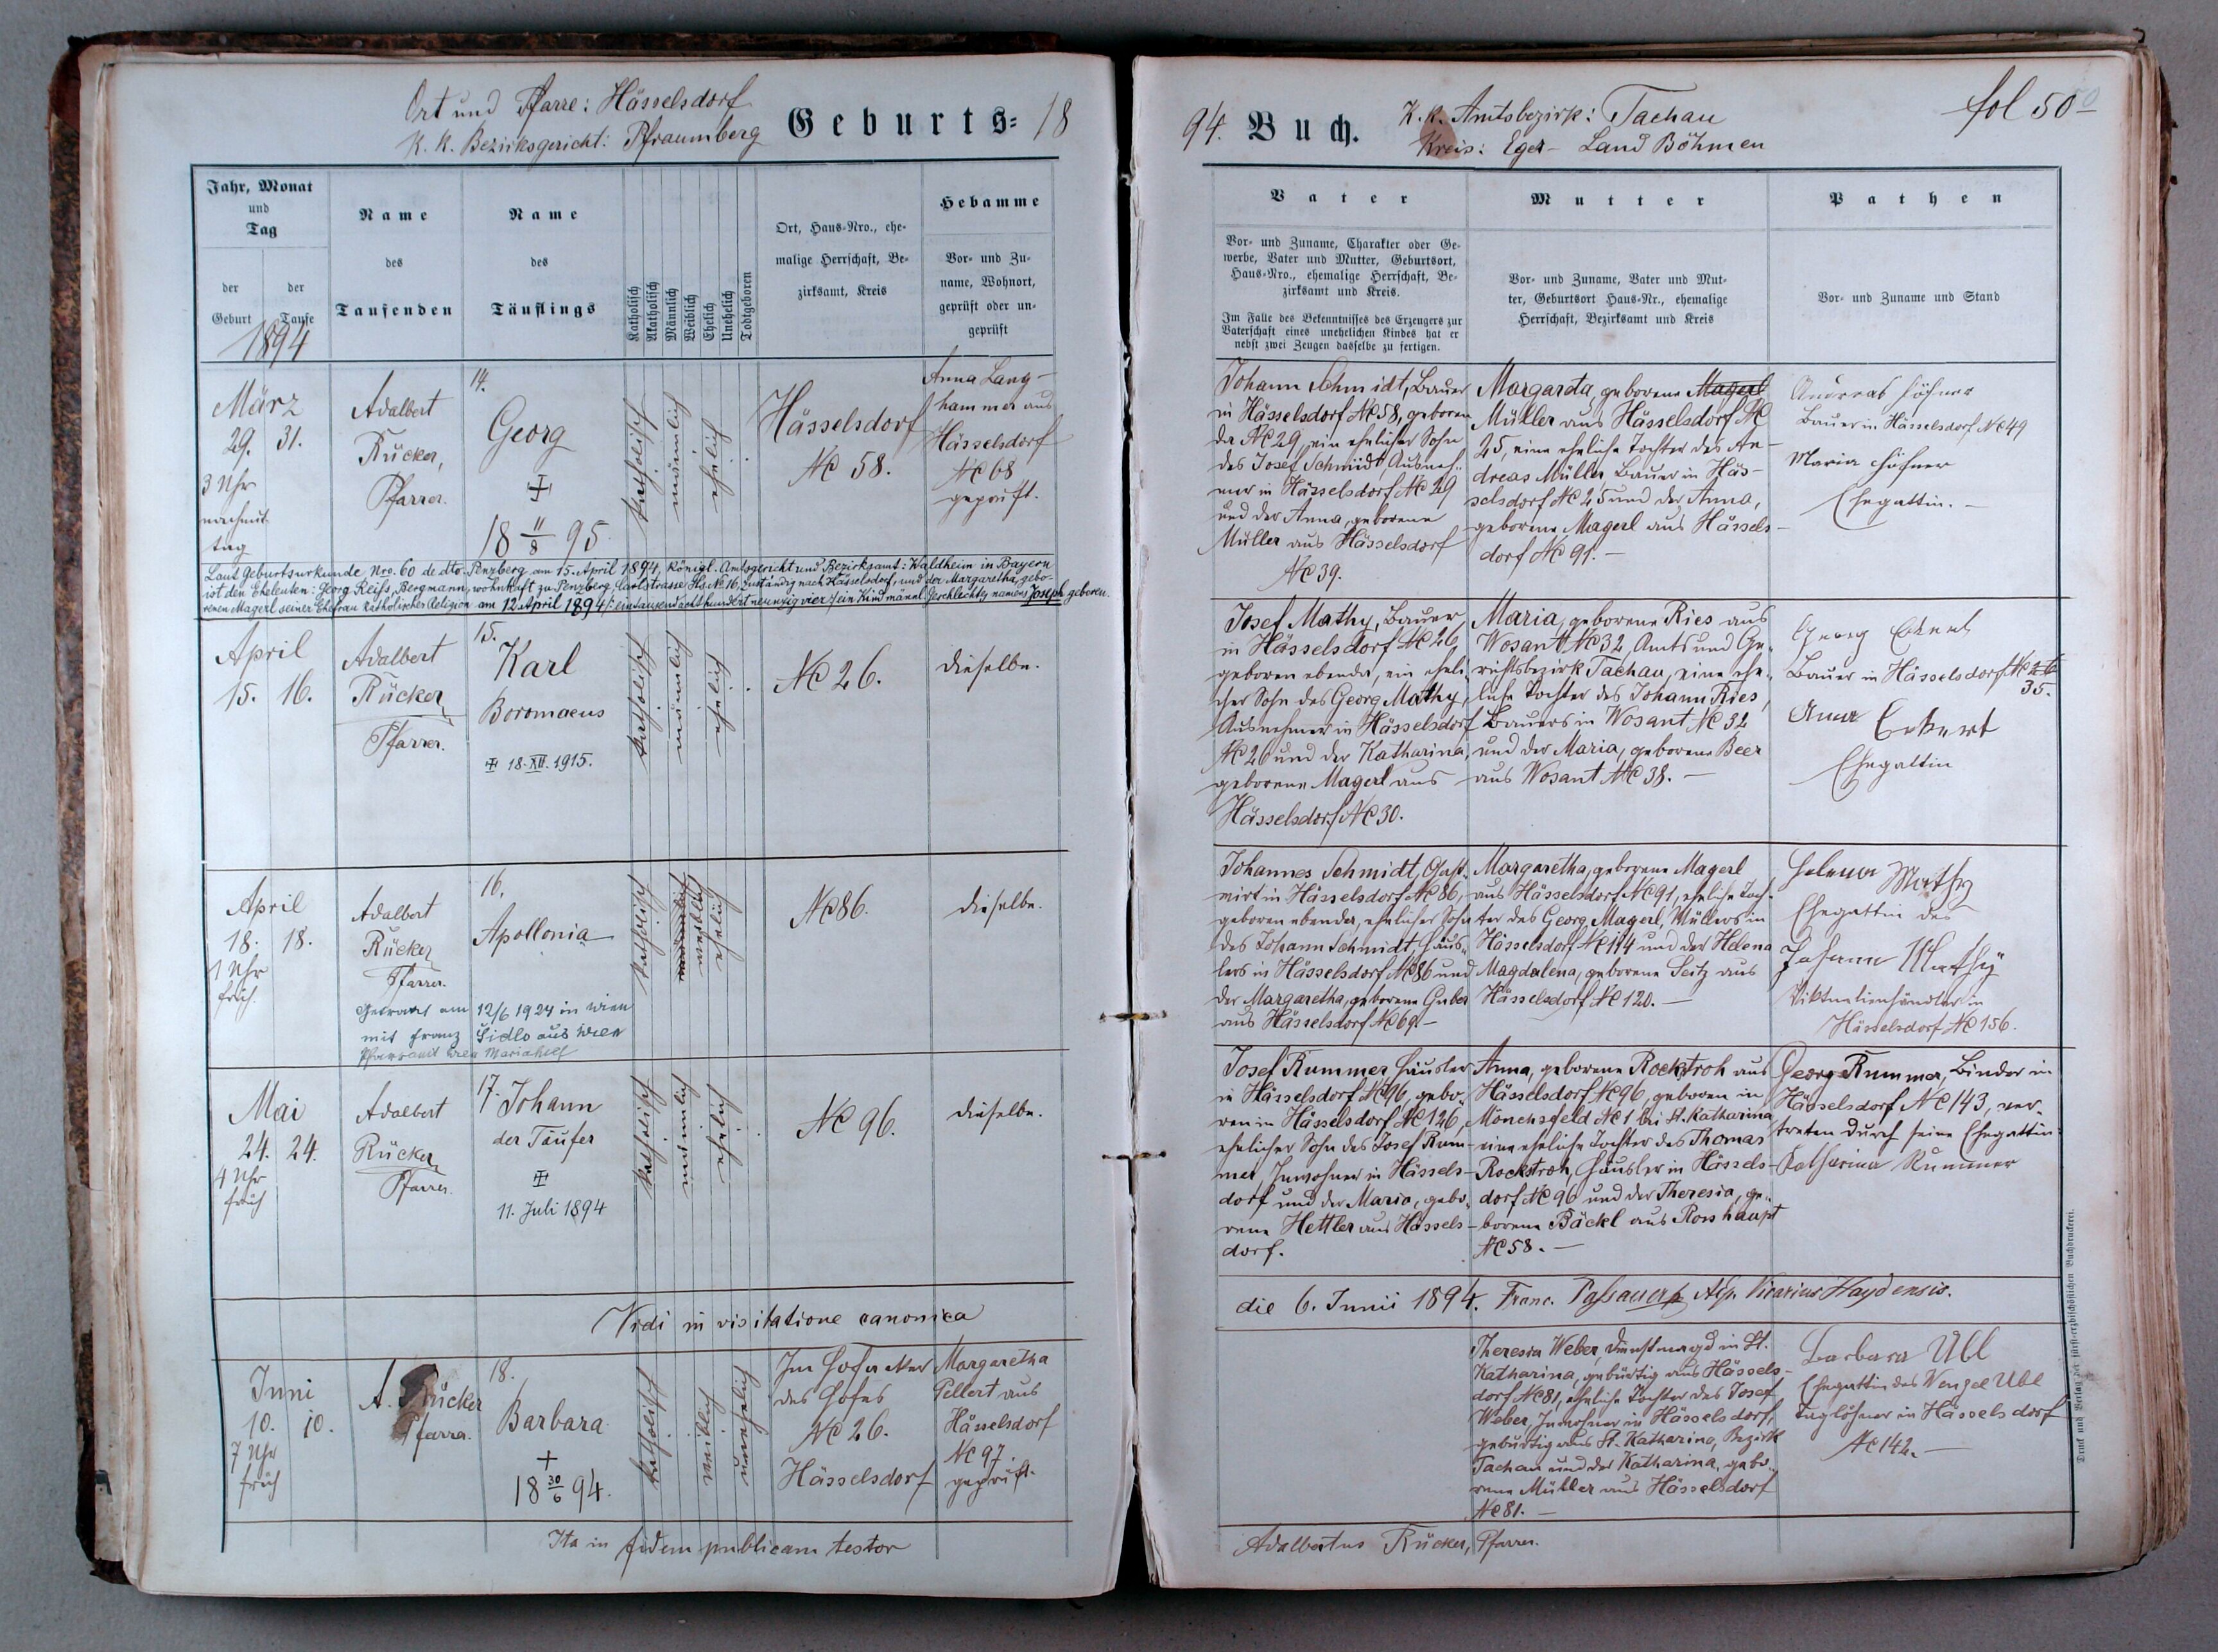 Ort und Pfarre: Hässelsdorf
K. K. Bezirksgericht: Pfraumberg
Geburts= 18
Jahr, Monat
und
Tag
der Geburt
der Taufe
1894
Name
des
Taufenden
Name
des
Täuflings
Katholisch
Akatholisch
Männlich
Weiblich
Ehelich
Unehelich
Todtgeboren
Ort, Haus-Nro., ehe-
malige Herrschaft, Be-
zirksamt, Kreis
Hebamme
Vor- und Zu-
name, Wohnort,
geprüft oder un-
geprüft
März
29. 31.
3 Uhr
nachmit-
tag
Adalbert
Rücker,
Pfarrer.
14.
Georg
+
18 11/8 95
katholisch
männlich
ehelich
Hässelsdorf
Nc 58.
Anna Lang-
hammer aus
Hässelsdorf
Nc 68
geprüft.
Laut Geburtsurkunde Nro. 60 de dto. Penzberg am 15. April 1894, königl. Amtsgericht und Bezirksamt: Waldheim in Bayern
ist den Eheleuten: Georg Reifs, Bergmann, wohnhaft zu Penzberg, Carlstrasse Hs. Nr. 16, zuständig nach Hässelsdorf, und der Margaretha, gebo-
renen Magerl seiner Ehefrau katholischer Religion am 12 April 1894 /: eintausend achthundert neunzig vier / ein Kind männl. Geschlechts, namens Joseph geboren.
April
15. 16.
Adalbert
Rücker,
Pfarrer.
15.
Karl
Boromaeus
+ 18. XII. 1915.
katholisch
männlich
ehelich
Nc 26.
dieselbe.
April
18. 18.
1 Uhr
früh.
Adalbert
Rücker
Pfarrer.
16.
Apollonia
katholisch
männlich
weiblich
ehelich
Nc 86.
dieselbe.
Getraut am 12/6 1924 in Wien
mit Franz Sidlo aus Wien
Pfarramt Wien Mariahilf
Mai
24. 24.
4 Uhr
früh
Adalbert
Rücker
Pfarrer.
17.
Johann
der Täufer
+
11. Juli 1894
katholisch
männlich
ehelich
Nc 96.
dieselbe.
Vidi in visitatione canonica
Juni
10. 10.
7 Uhr
früh
A. Rücker
Pfarrer.
18.
Barbara
+
18 30/6 94.
katholisch
weiblich
unehelich
des Hofes
Nc 26.
Hässelsdorf
Margaretha
Pellert aus
Hässelsdorf
Nc 97.
geprüft.
Ita in fidem publicam testor
94. Buch.
K. K. Amtsbezirk: Tachau
Kreis: Eger - Land Böhmen
fol 50
Vater
Vor- und Zuname, Charakter oder Ge-
werbe, Vater und Mutter, Geburtsort,
Haus-Nro., ehemalige Herrschaft, Be-
zirksamt und Kreis.
Im Falle des Bekenntnisses des Erzeugers zur
Vaterschaft eines unehelichen Kindes hat er
nebst zwei Zeugen dasselbe zu fertigen.
Mutter
Vor- und Zuname, Vater und Mut-
ter, Geburtsort Haus-Nr., ehemalige
Herrschaft, Bezirksamt und Kreis
Pathen
Vor- und Zuname und Stand
Johann Schmidt, Bauer
in Hässelsdorf Nc 58, geboren
da Nc 29, ein ehelicher Sohn
des Josef Schmidt Ausneh-
mer in Hässelsdorf Nc 29
und der Anna, geborene
Müller aus Hässelsdorf
Nc 39.
Margareta, geborene Magerl
Müller aus Hässelsdorf Nc
25, eine eheliche Tochter des An-
dreas Müller Bauer in Häs-
selsdorf Nc 25 und der Anna,
geborene Magerl aus Hässels-
dorf Nc 91. -
Andreas Höhner
Bauer in Hässelsdorf Nc 49
Maria Höhner
Ehegattin. -
Josef Mathy, Bauer
in Hässelsdorf Nc 26,
geboren ebenda, ein eheli-
cher Sohn des Georg Mathy,
Ausnehmer in Hässelsdorf
Nc 26 und der Katharina,
geborene Magerl aus
Hässelsdorf Nc 30.
Maria, geborene Ries aus
Wosant Nc 32, Amts und Ge-
richtsbezirk Tachau, eine ehe-
liche Tochter des Johann Ries,
Bauers in Wosant Nc 32
und der Maria, geborene Beer
aus Wosant Nc 38. -
Georg Eckert
Bauer in Hässelsdorf Nc 26
35.
Anna Eckert
Ehegattin
Johannes Schmidt, Gast-
wirt in Hässelsdorf Nc 86,
geboren ebenda, ehelicher Sohn
des Johann Schmidt, Häus-
lers in Hässelsdorf Nc 86 und
der Margaretha, geborene Guber
aus Hässelsdorf Nc 69. -
Margaretha, geborene Magerl
aus Hässelsdorf Nc 91, eheliche Toch-
ter des Georg Magerl, Müllers in
Hässelsdorf Nc 114 und der Helena
Magdalena, geborene Seitz aus
Hässelsdorf Nc 120. -
Helena Mathy
Ehegattin des
Johann Mathy
Viktualienhändler in
Hässelsdorf Nc 156.
Josef Rummer, Häusler
in Hässelsdorf Nc 96, gebo-
ren in Hässelsdorf Nc 126,
ehelicher Sohn des Josef Rum-
mer Inwohner in Hässels-
dorf und der Maria, gebo-
rene Hettler aus Hässels-
dorf.
Anna, geborene Rockstroh aus
Hässelsdorf Nc 96, geboren in
Mönchsfeld Nc 1 bei St. Katharina
eine eheliche Tochter des Thomas
Rockstroh, Häusler in Hässels-
dorf Nc 96 und der Theresia, ge-
borene Bäckl aus Rosshaupt
Nc 58. -
Georg Rummer, Binder in
Hässelsdorf Nc 143, ver-
treten durch seine Ehegattin
Katharina Rummer
die 6. Junii 1894. Franc. Passauer, Vicarius Haydensis.
Theresia Weber, Dienstmagd in St.
Katharina, gebürtig aus Hässels-
dorf Nc 81, eheliche Tochter des Josef
Weber, Inwohner in Hässelsdorf,
gebürtig aus St. Katharina, Bezirk
Tachau und der Katharina, gebo-
rene Müller aus Hässelsdorf
Nc 81. -
Barbara Ubl
Ehegattin des Wenzel Ubl
Taglöhner in Hässelsdorf
Nc 142. -
Adalbertus Rücker, Pfarrer.
Druck und Verlag der fürst-erzbischöflichen Buchdruckerei.